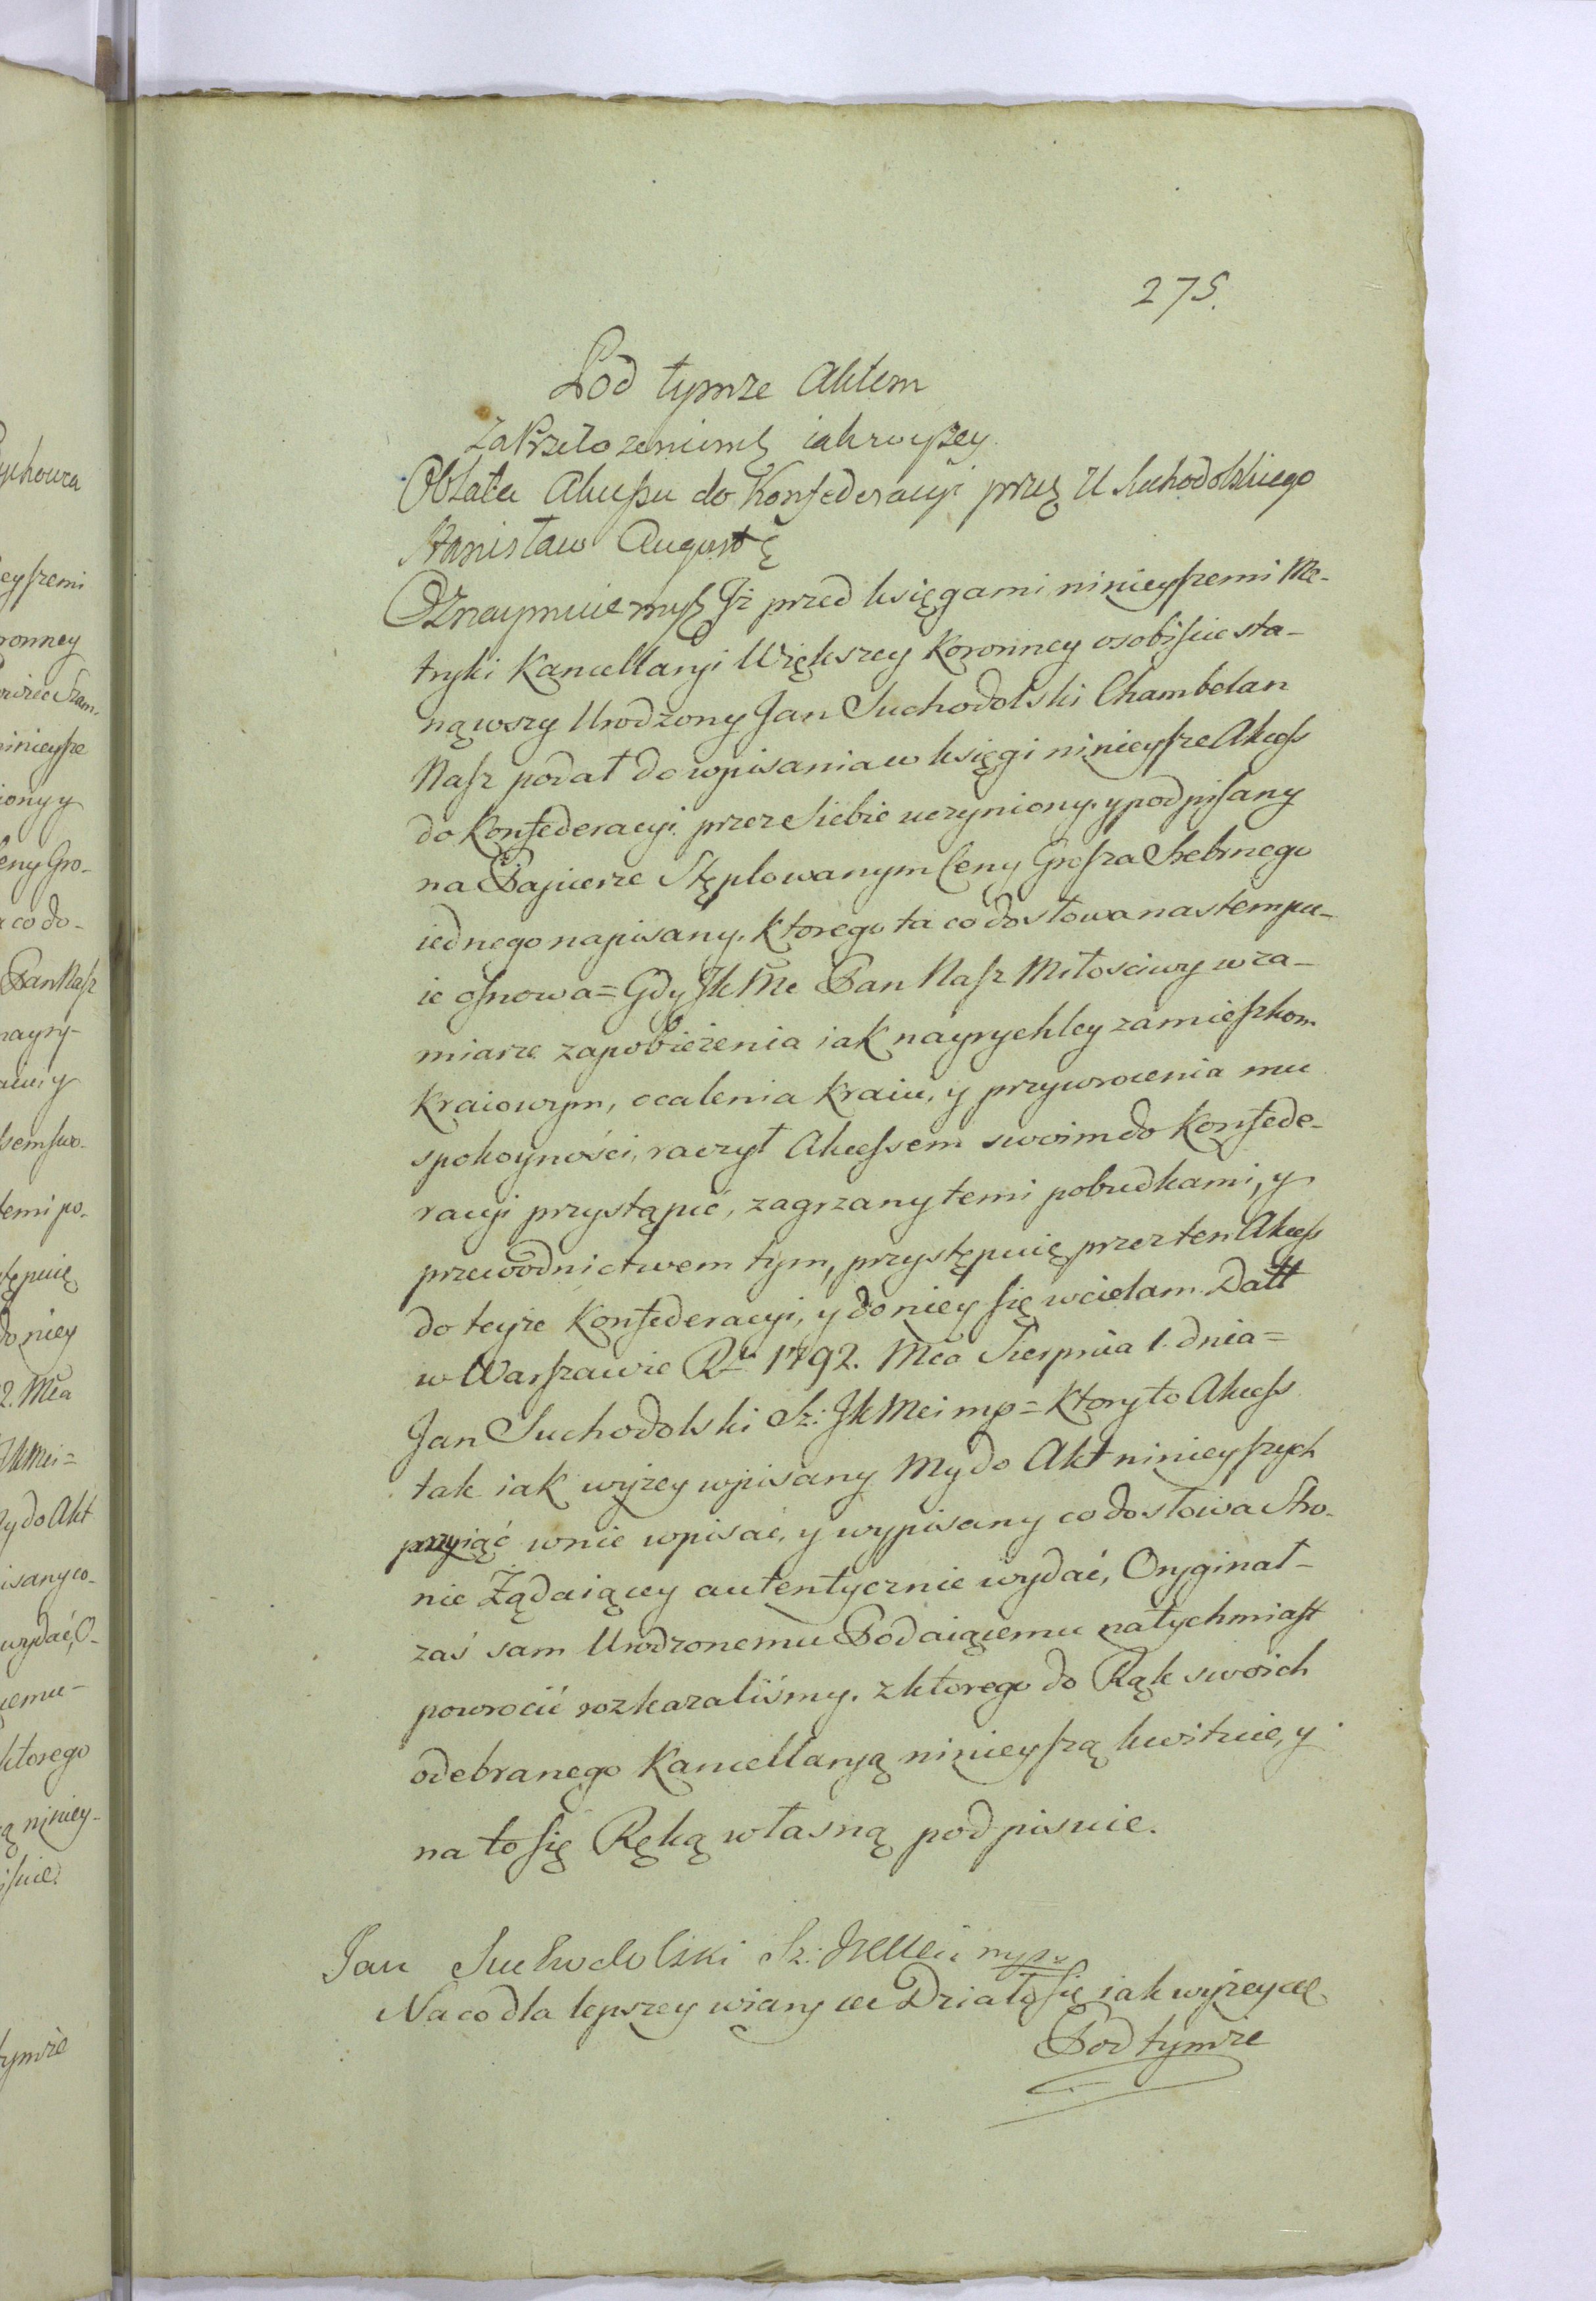 275.
Pod tymże Aktem
Za Przełożeniem jak wyszey.
Oblata Akcessu do Konfederacyi przez U Suchodolskiego
Stanisław August
Oznaymuiemy Iż przed księgami ninieyszemi Me-
tryki Kancellaryi Większey Koronney osobiscie sta-
nąwszy Urodzony Jan Suchodolski Chambelan
Nasz podał do wpisania w księgi ninieysze Akcess
do Konfederacyi przez siebie uczyniony, y podpisany
na Papierze Stęplowanym Ceny Grosza Srebrnego
iednego napisany, ktorego ta co do słowa nastempu-
ie osnowa = Gdy JKMc Pan Nasz Miłosciwy w za-
miarze zapobieżenia iak nayrychley zamieszkom
kraiowym, ocalenia kraiu, y przywrocenia mu
spokoyności, raczył Akcessem swoim do Konfede-
racyi przystąpić, zagrzany temi pobudkami, y
przewodnictwem tym, przystępuię przez ten Akcess
do teyże Konfederacyi, y do niey się wcielam. Datt
w Warszawie Rku 1792. Mca Sierpnia 1. dnia =
Jan Suchodolski Sz: JKMci mp = Ktory to Akcess
tak iak wyżey wpisany My do Akt ninieyszych
przyiąć w nie wpisać, y wypisany co do słowa Stro-
nie Żądaiącey autentycznie wydać, Oryginał-
zaś sam Urodzonemu Podaiącemu natychmiast
powrocić rozkazaliśmy, z ktorego do Rąk swoich
odebranego Kancellaryą ninieyszą kwituie, y
na to się Ręką własną podpisuie.
Jan Suchodolski Sz: JKMci mpr
Na co dla lepszey wiary &c Działo się iak wyżey &c
Pod tymże